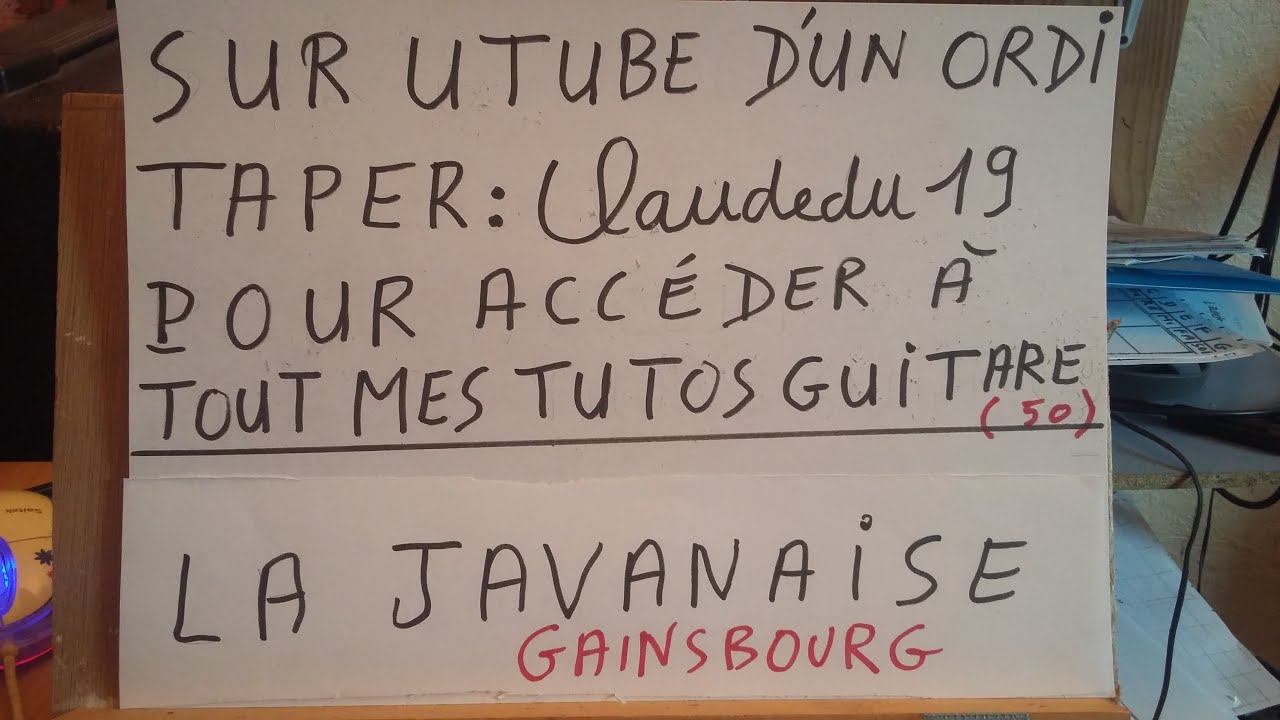 SUR UTUBE D'UN ORDI
TAPER: Claudedu 19
POUR ACCÉDER À
TOUT MES TUTOS GUITARE
(50)
LA JAVANAISE
GAINSBOURG